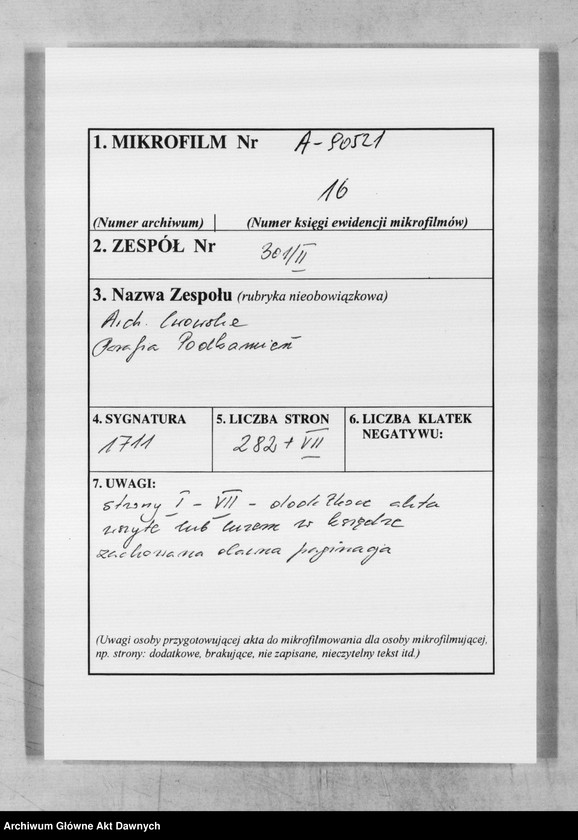 1. MIKROFILM Nr A-90521
16
(Numer archiwum) (Numer księgi ewidencji mikrofilmów)
2. ZESPÓŁ Nr 301/II
3. Nazwa Zespołu (rubryka nieobowiązkowa)
Arch. Lwowskie
Parafia Podkamień
4. SYGNATURA
1711
5. LICZBA STRON
282 + VII
6. LICZBA KLATEK
NEGATYWU:
7. UWAGI:
strony I - VII - dodatkowe akta
wszyte lub luzem w księdze
zachowana dawna paginacja
(Uwagi osoby przygotowującej akta do mikrofilmowania dla osoby mikrofilmującej,
np. strony: dodatkowe, brakujące, nie zapisane, nieczytelny tekst itd.)
Archiwum Główne Akt Dawnych